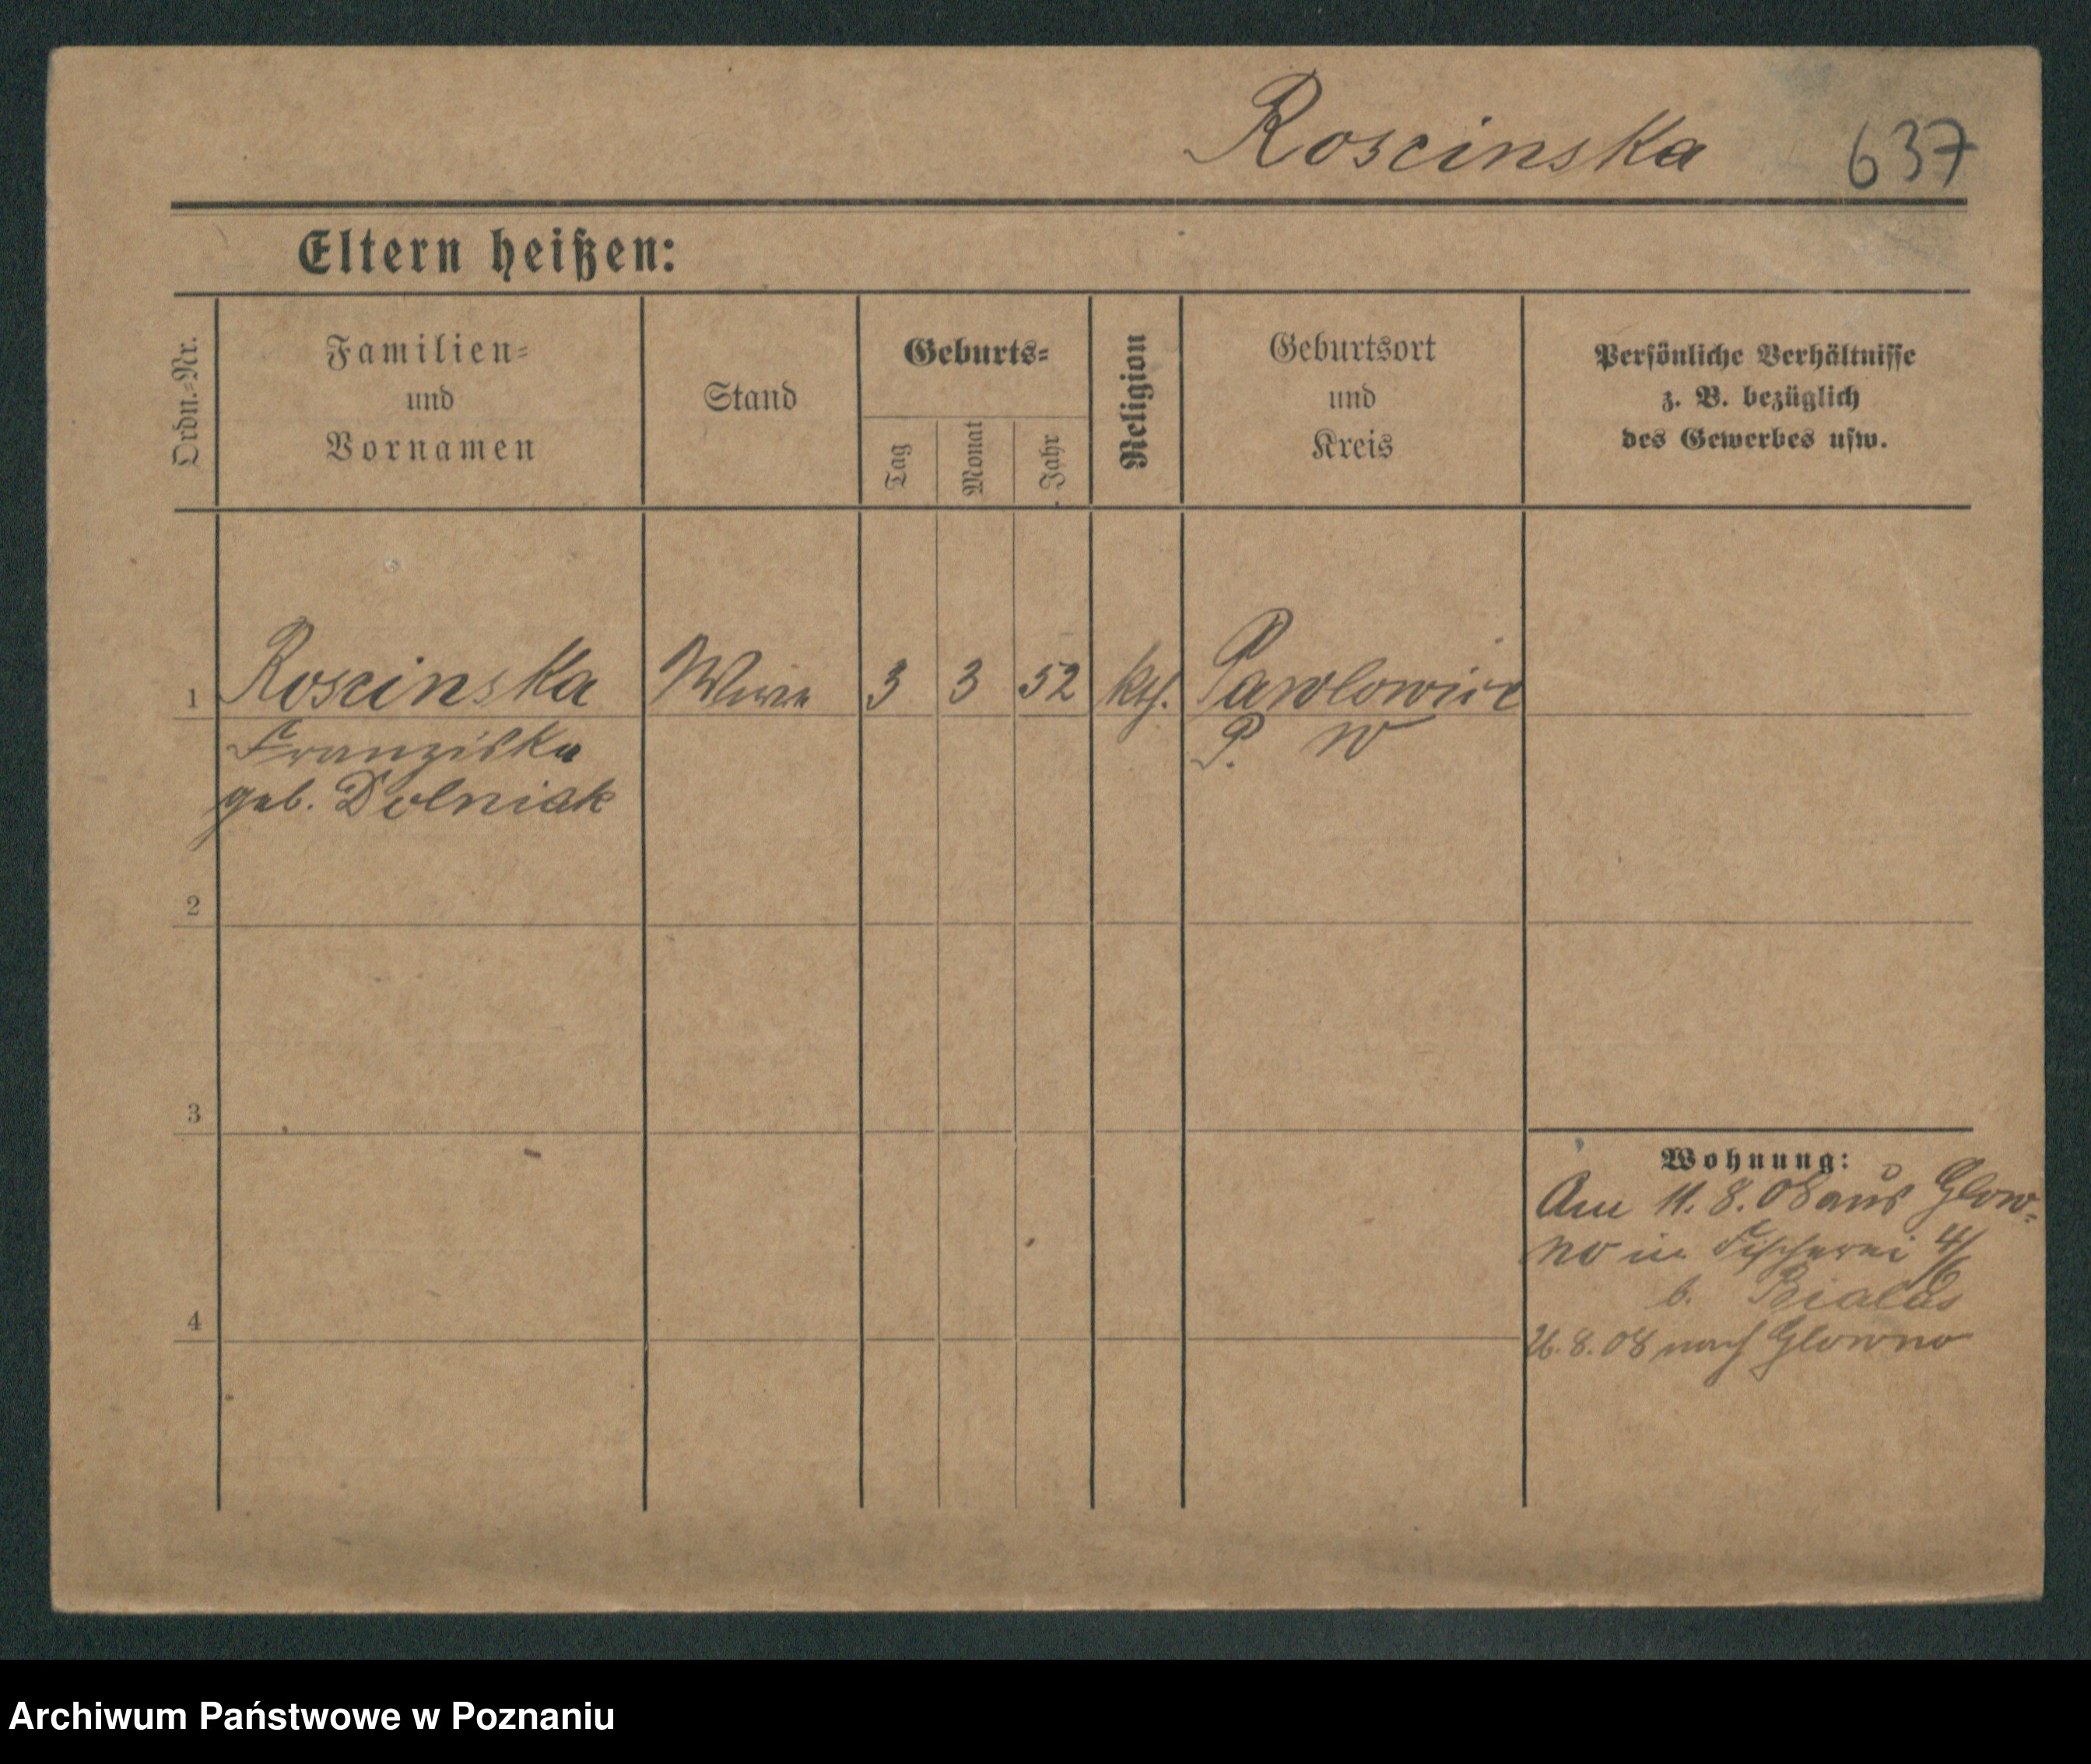 Roscinska 637
Eltern heißen:
Ordn.=Nr.
Familien=
und
Vornamen
Stand
Geburts=
Tag
Monat
Jahr
Religion
Geburtsort
und
Kreis
Persönliche Verhältnisse
z. B. bezüglich
des Gewerbes usw.
1 Roscinska 3 3 52 kth. Pawlowice
P. W
Franziska
geb. Dolniak
2
3
4
Wohnung:
Am 11. 8. 08 aus Glow-
no in Fischerei 4/6
b. Bialas
8. 08 nach Glowno
Archiwum Państwowe w Poznaniu